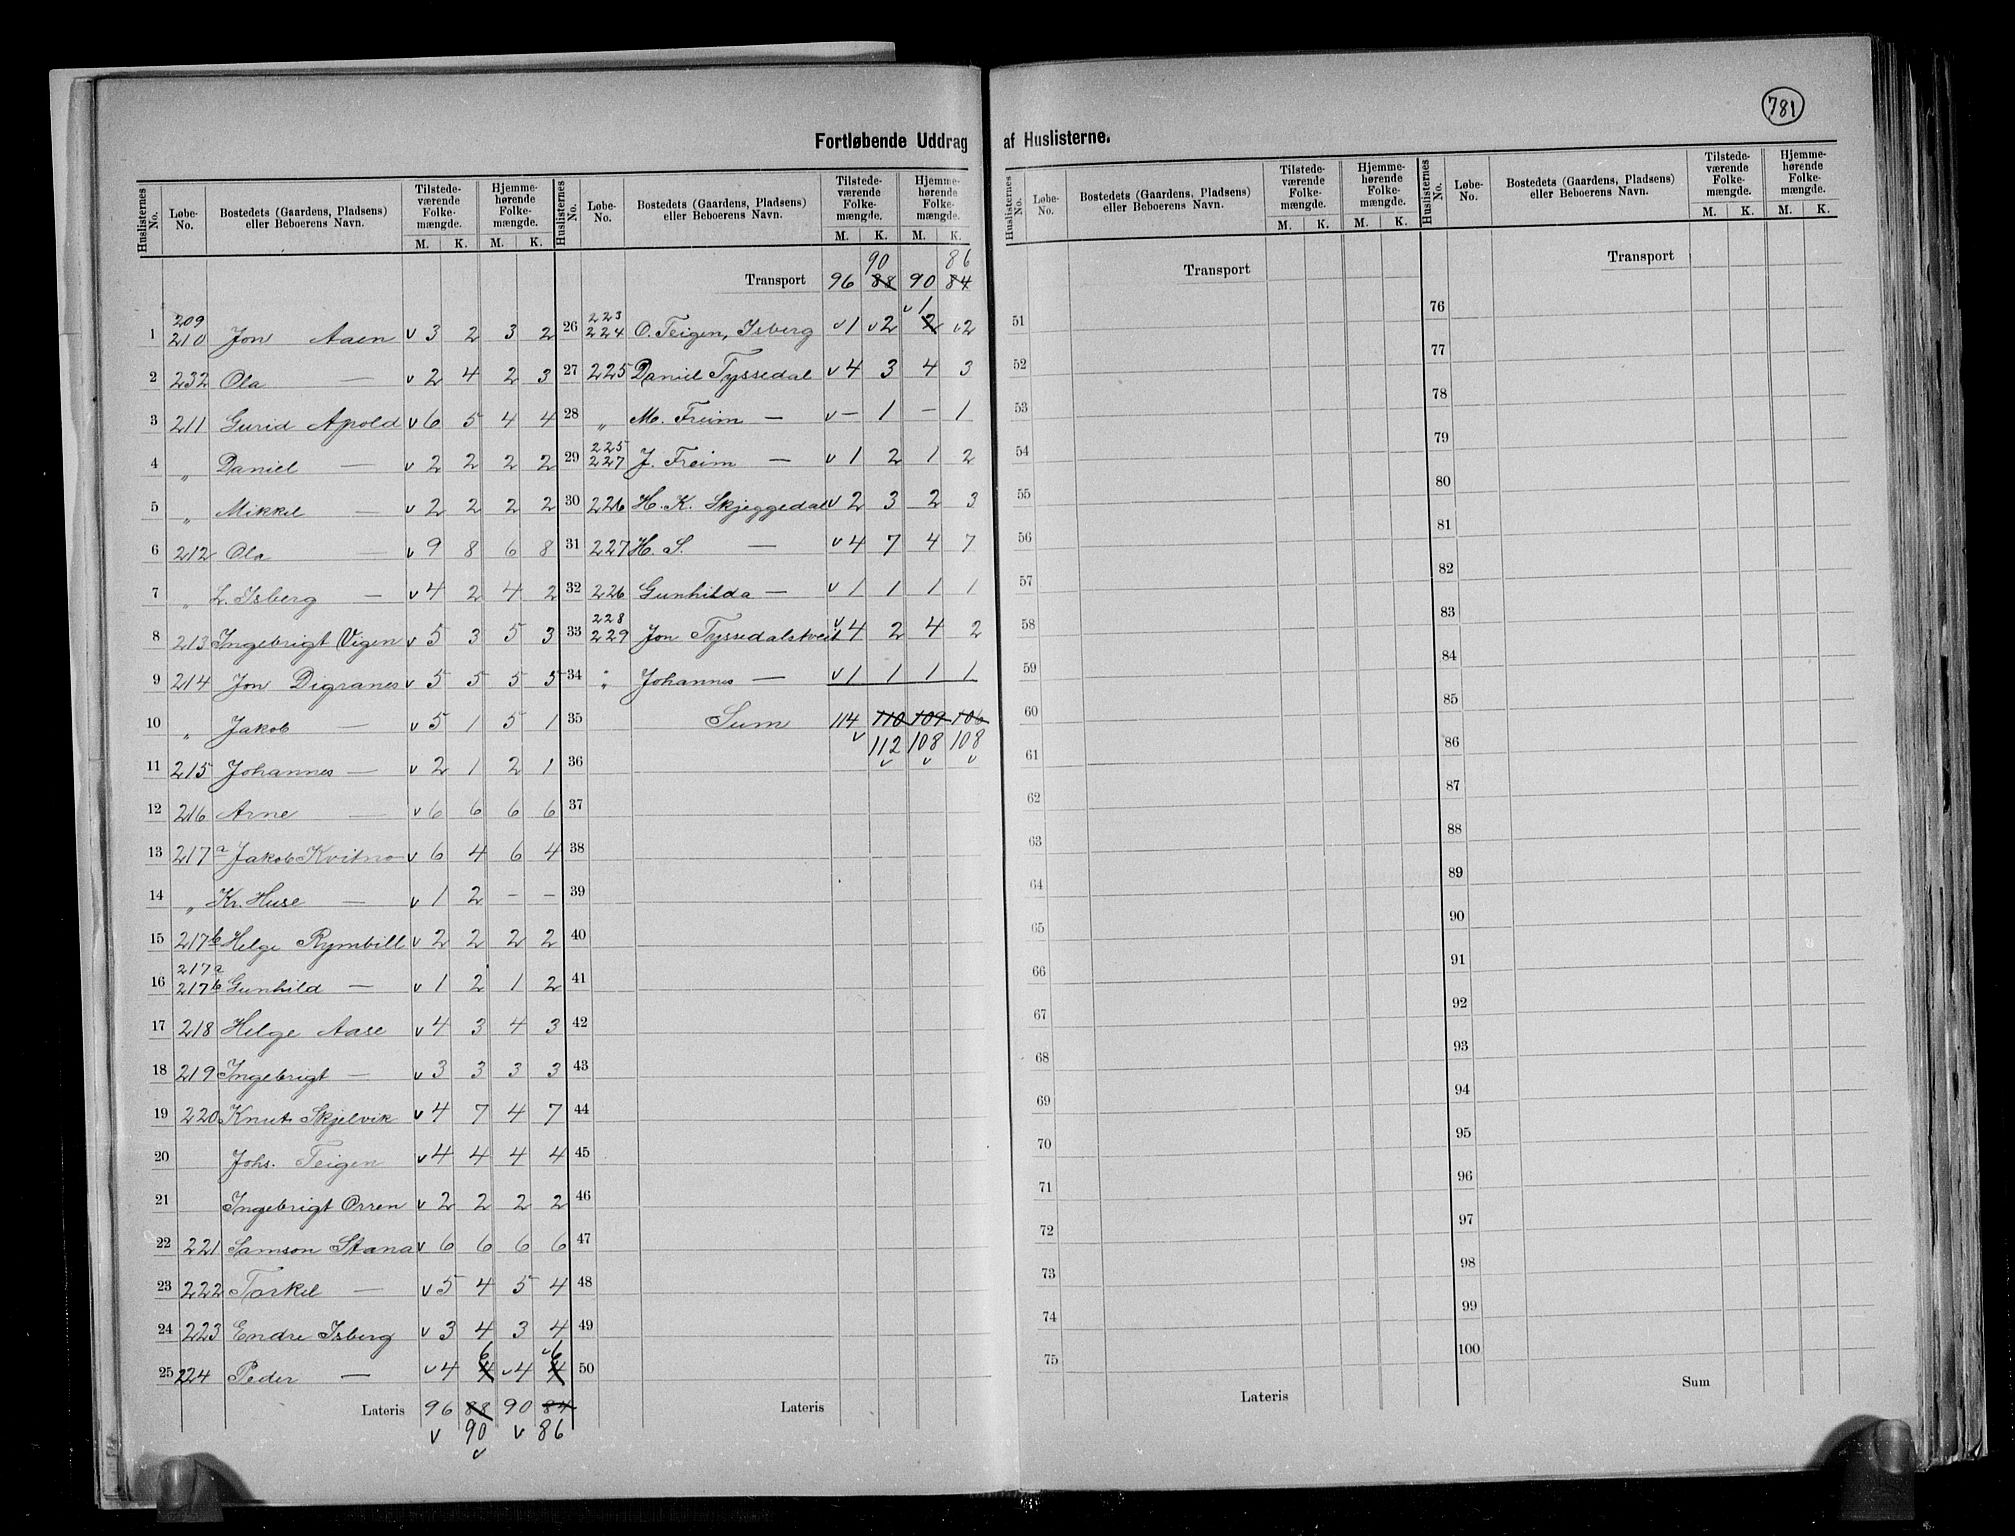 781
Fortløbende Uddrag af Huslisterne.
Huslisternes No. Løbe-No. Bostedets (Gaardens, Pladsens) eller Beboerens Navn. Tilstedeværende Folkemængde. M. K. Hjemmehørende Folkemængde. M. K.
1 209 210 Jon Aaen v 3 2 3 2
2 232 Ola — v 2 4 2 3
3 211 Gurid Apold v 6 5 4 4
4 " Daniel — v 2 2 2 2
5 " Mikkel — v 2 2 2 2
6 212 Ola — v 9 8 6 8
7 " L. Isberg — v 4 2 4 2
8 213 Ingebrigt Vigen v 5 3 5 3
9 214 Jon Digranes v 5 5 5 5
10 " Jakob — v 5 1 5 1
11 215 Johannes — v 2 1 2 1
12 216 Arne — v 6 6 6 6
13 217a Jakob Kvitno v 6 4 6 4
14 " Kr. Huse — v 1 2 - -
15 217b Helge Rymbill v 2 2 2 2
16 217a 217b Gunhild — v 1 2 1 2
17 218 Helge Aase v 4 3 4 3
18 219 Ingebrigt — v 3 3 3 3
19 220 Knut Skjelvik v 4 7 4 7
20 Johs. Teigen v 4 4 4 4
21 Ingebrigt Orren v 2 2 2 2
22 221 Samson Stana v 6 6 6 6
23 222 Torkel — v 5 4 5 4
24 223 Endre Isberg v 3 4 3 4
25 224 Peder — v 4 4 6 v 4 4 v 6
Lateris 96 88 90 84
v 90 v 86
v
Huslisternes No. Løbe-No. Bostedets (Gaardens, Pladsens) eller Beboerens Navn. Tilstedeværende Folkemængde. M. K. Hjemmehørende Folkemængde. M. K.
90 86
Transport 96 88 90 84
26 223 224 O. Teigen, Isberg v 1 v 2 2 v 1 v 2
27 225 Daniel Tyssedal v 4 3 4 3
28 " M. Freim — v - 1 - 1
29 225 227 J. Freim — v 1 2 1 2
30 226 H. K. Skjeggedal v 2 3 2 3
31 227 H. S. — v 4 7 4 7
32 226 Gunhilda — v 1 1 1 1
33 228 229 Jon Tyssedalstveit v 4 2 4 2
34 " Johannes — v 1 1 1 1
35 Sum 114 110 109 106
v 112 108 108
36 v v v
37
38
39
40
41
42
43
44
45
46
47
48
49
50
Lateris
Huslisternes No. Løbe-No. Bostedets (Gaardens, Pladsens) eller Beboerens Navn. Tilstedeværende Folkemængde. M. K. Hjemmehørende Folkemængde. M. K.
Transport
51
52
53
54
55
56
57
58
59
60
61
62
63
64
65
66
67
68
69
70
71
72
73
74
75
Lateris
Huslisternes No. Løbe-No. Bostedets (Gaardens, Pladsens) eller Beboerens Navn. Tilstedeværende Folkemængde. M. K. Hjemmehørende Folkemængde. M. K.
Transport
76
77
78
79
80
81
82
83
84
85
86
87
88
89
90
91
92
93
94
95
96
97
98
99
100
Sum